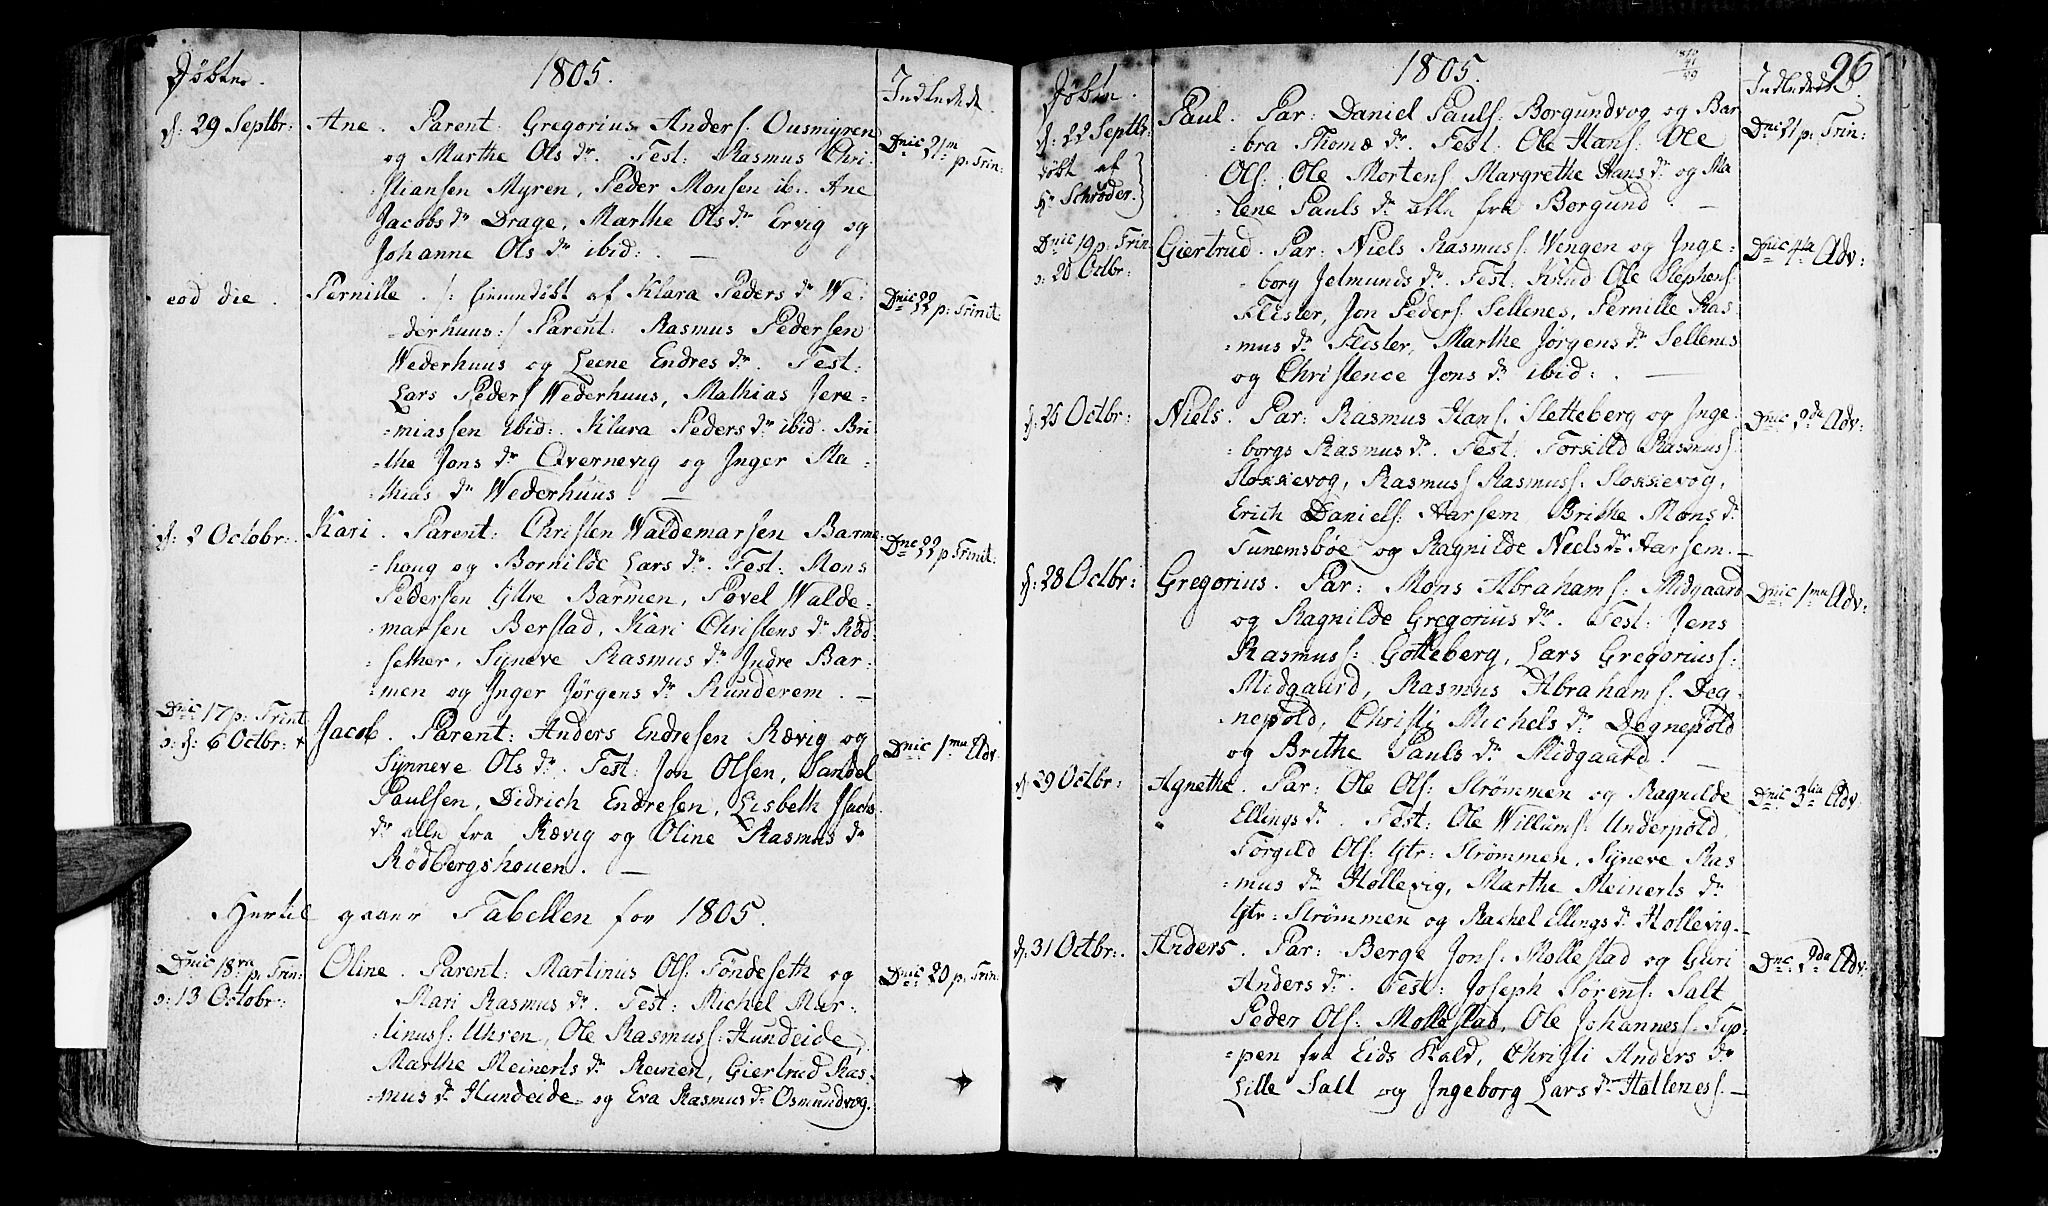 Døbte.
1805.
Indledede.
d: 29 Septbr:
Ane. Parent: Gregorius Anders: Ousmyren
og Marthe Ols dr. Test: Rasmus Chri-
-stiansen Myren, Peder Monsen ib: Ane
Jacobs dr Drage, Marthe Ols dr Ervig og
Johanne Ols dr ibid: . —
Dnic 21m p: Trin:
eod die.
Pernille. /: hiemmedøbt af Klara Peders dr We-
-derhuus :/ Parent: Rasmus Pedersen
Wederhuus og Leene Endres dr. Test:
Lars Peders Wederhuus, Mathias Jere-
-miassen ibid: Klara Peders dr ibid. Bri
-the Jons dr Qvernevig og Inger Ma-
-thias dr Wederhuus. —
Dnic 22 p: Trinit:
d: 2 Octobr:
Kari. Parent: Christen Waldemarsen Barme-
-houg og Bornilde Lars dr. Test: Mons
Pedersen Yttre Barmen, Povel Walde-
-marsen Berstad, Kari Christens dr Rød-
-sether, Syneve Rasmus dr Indre Bar-
-men og Inger Jørgens dr Runderem. —
Dnic 22 p Trinit:
Dnic 17 p: Trinit
ɔ: d: 6 Octbr:
Jacob. Parent: Anders Endresen Rævig og
Synneve Ols dr. Test: Jon Olsen, Sandel
Paulsen, Didrich Endresen, Lisbeth Isachs
dr alle fra Rævig og Oline Rasmus dr
Rødbergshouen. —
Dnic 1ma Adv.
Hertil gaaer Tabellen for 1805.
Dnic 18va p: Trin:
ɔ: 13 Octobr:
Oline. Parent: Martinus Ols: Tøndeseth og
Mari Rasmus dr. Test: Michel Mar-
-tinuss: Uhren, Ole Rasmuss: Hundeide,
Marthe Meinerts dr Revien, Giertrud Ras-
-mus dr Hundeide og Eva Rasmus dr Osmundvog.
Dnic 20 p: Trin:
Døbte.
1805.
26
Indledede.
d: 22 Septb:
døbt af
Hr Schrøder.
Paul. Par: Daniel Pauls: Borgundvog og Bar
-bra Thomæ dr. Test: Ole Hans: Ole
Ols: Ole Mortens Margrethe Hans dr og Ma
-lene Pauls dr alle fra Borgund. —
Dnic 21 p: Trin:
Dnic 19 p: Trin:
ɔ: 20 Octbr:
Giertrud. Par: Niels Rasmuss: Wengen og Inge-
-borg Jetmunds dr. Test: Knud Ole Stephens:
Flister, Jon Peders: Sellenes, Pernille Ras-
-mus dr Flister, Marthe Jørgens dr Sellenes
og Christence Jons dr ibid: . —
Dnic 4ta Adv:
d: 25 Octbr:
Niels. Par: Rasmus Hans: Sletteberg og Inge-
-borgs Rasmus dr. Test: Torkild Rasmuss:
Stokkevog, Rasmus Rasmuss: Stokkevog,
Erich Daniels: Aarsem Brithe Mons dr
Tunemsbøe og Ragnilde Niels dr Aarsem. —
Dnic 2da Adv:
d: 28 Octbr:
Gregorius. Par: Mons Abrahams: Midgaard
og Ragnilde Gregorius dr. Test: Jens
Rasmuss: Gotteberg, Lars Gregoriuss:
Midgaard, Rasmus Abrahams: Deg-
-nepold, Christi Michels dr Degnepold
og Brithe Pauls dr Midgaard. —
Dnic 1ma Adv:
d: 29 Octbr:
Agnethe. Par: Ole Ols: Strømmen og Ragnilde
Ellings dr. Test: Ole Willums: Underpold,
Torgild Ols: Ytr: Strømmen, Syneve Ras
-mus dr Hollevig, Marthe Meinerts dr
Ytr: Strømmen og Rachel Ellings dr Hollevig. —
Dnic 3tia Adv:
d: 31 Octbr:
Anders. Par: Berge Jons: Mollestad og Guri
Anders dr. Test: Joseph Sørens: Salt
Peder Ols: Mollestad, Ole Johanness: Tep-
-pen fra Eids Kald, Christi Anders dr
Lille Salt og Ingeborg Lars dr Hatleness. —
Dnic 2da Adv: